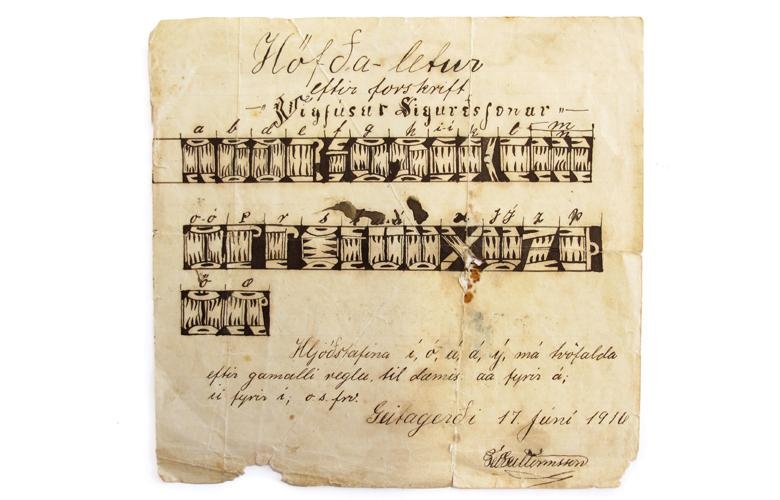 Höfða-letur
eftir forskrift
Vigfúsar Sigurðssonar
a b d e f g h i-í k l m n
o-ó p r s t u ú x y ý z þ
ö æ
Hljóðstafina í, ó, ú, á, ý, má tvöfalda
eftir gamalli reglu, til dæmis: aa fyrir á;
ii fyrir í; o.s.frv.
Geitagerði 17. júní 1916